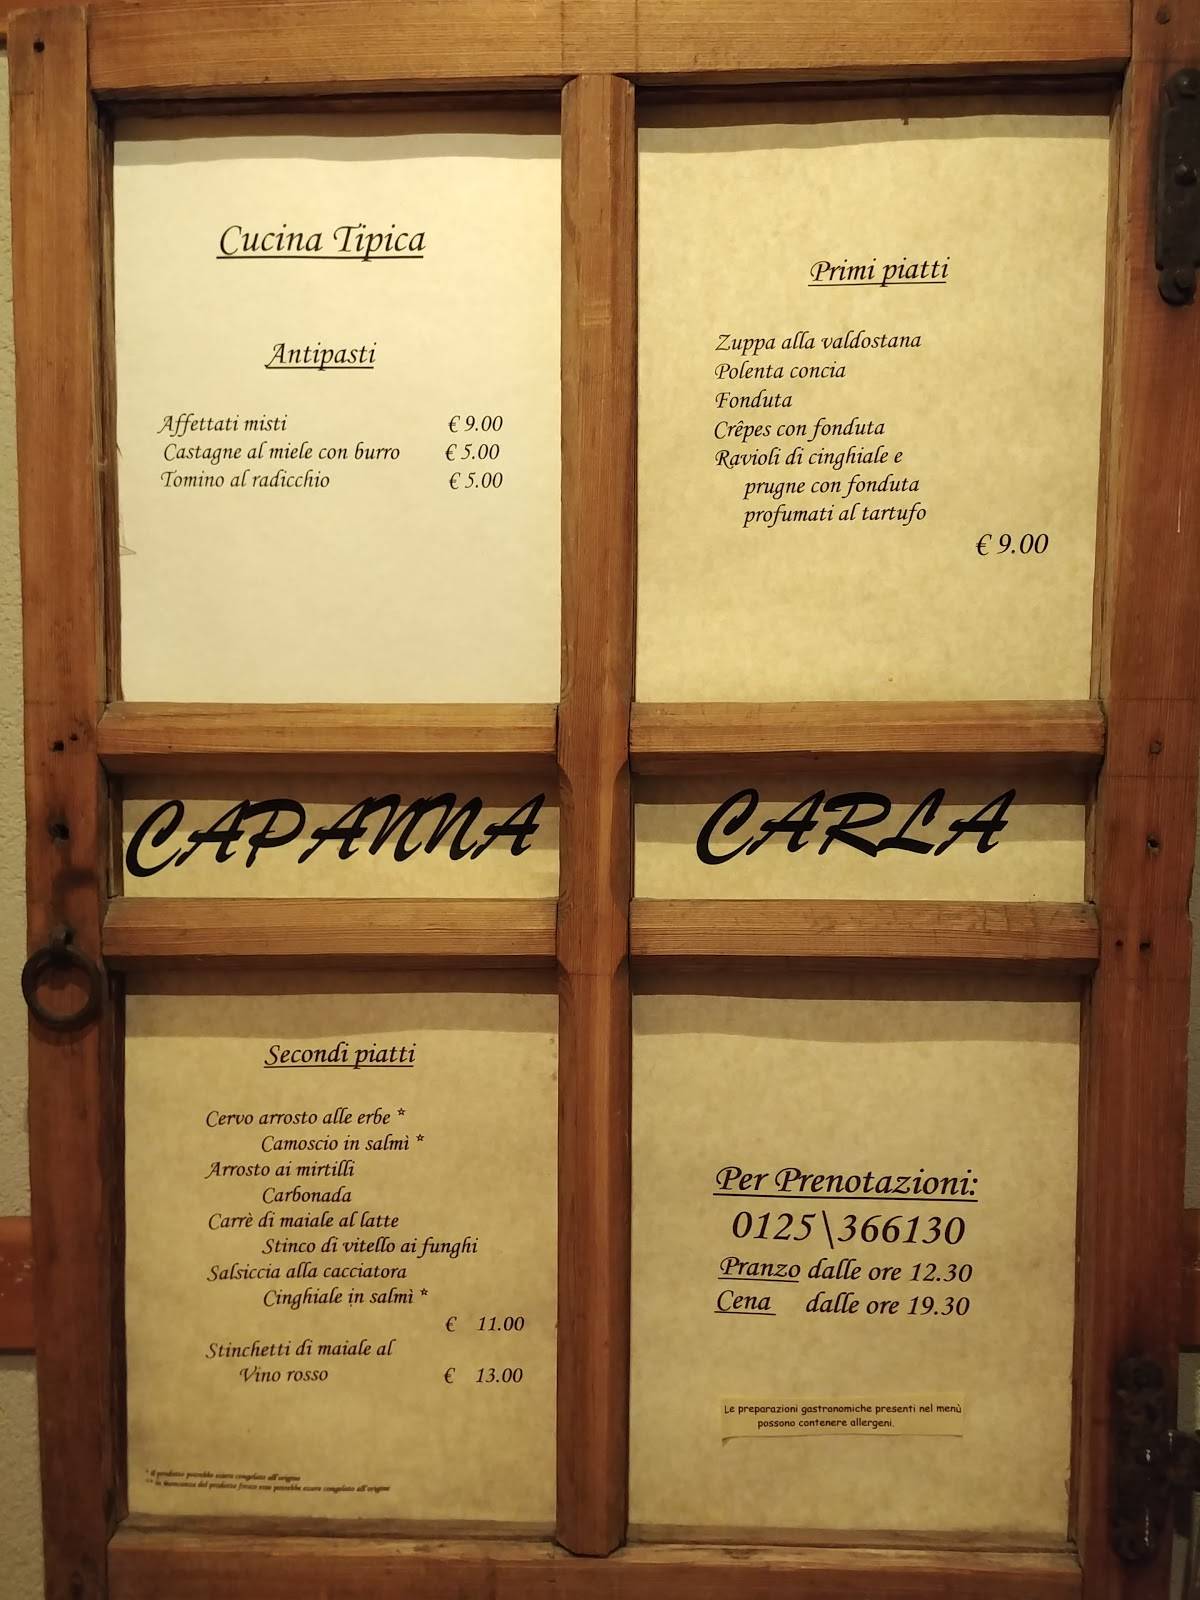 Cucina Tipica
Antipasti
Affettati misti € 9.00
Castagne al miele con burro € 5.00
Tomino al radicchio € 5.00
Primi piatti
Zuppa alla valdostana
Polenta concia
Fonduta
Crêpes con fonduta
Ravioli di cinghiale e
prugne con fonduta
profumati al tartufo
€ 9.00
CAPANNA CARLA
Secondi piatti
Cervo arrosto alle erbe *
Camoscio in salmì *
Arrosto ai mirtilli
Carbonada
Carrè di maiale al latte
Stinco di vitello ai funghi
Salsiccia alla cacciatora
Cinghiale in salmì *
€ 11.00
Stinchetti di maiale al
Vino rosso € 13.00
* il prodotto potrebbe essere congelato all'origine
** in mancanza del prodotto fresco esso potrebbe essere congelato all'origine
Per Prenotazioni:
0125\366130
Pranzo dalle ore 12.30
Cena dalle ore 19.30
Le preparazioni gastronomiche presenti nel menù
possono contenere allergeni.